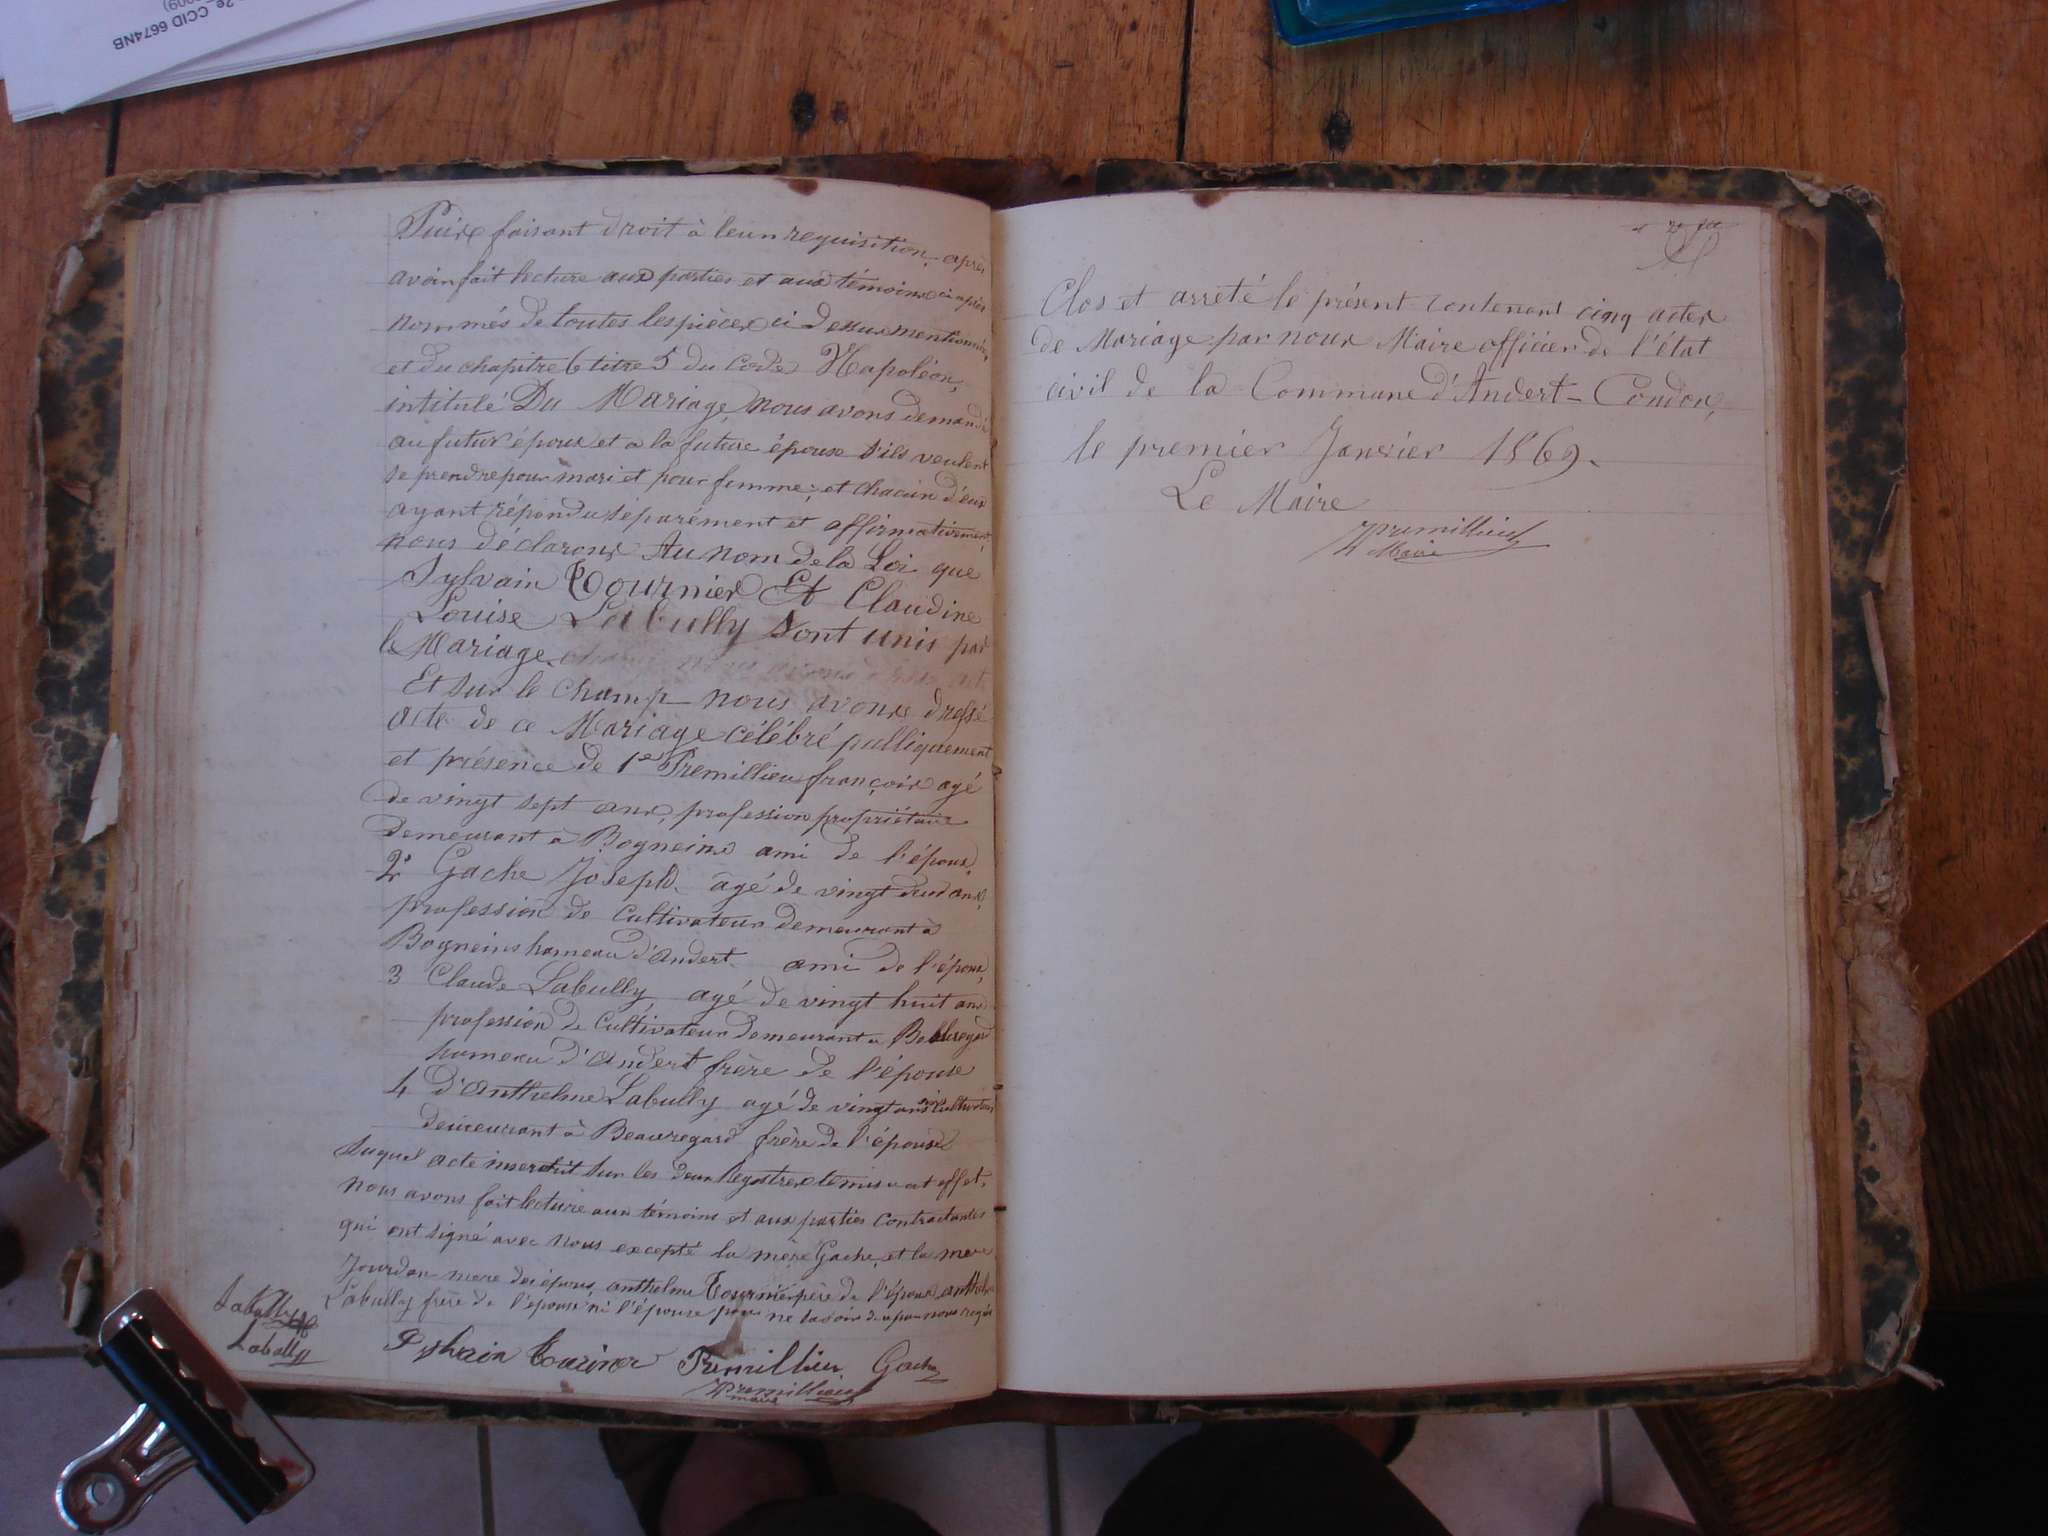 2e CCID 6674NB
2009)
Puis faisant droit à leur requisition, après
avoir fait lecture aux parties et aux témoins ci après
nommés de toutes les pièces ci dessus mentionnées,
et du chapitre 6 titre 5 du Code Napoléon,
intitulé Du Mariage, nous avons demandé
au futur époux et a la future épouse s'ils veulent
se prendre pour mari et pour femme, et chacun d'eux
ayant répondu séparément et affirmativement,
nous déclarons Au nom de la Loi que
Sylvain Tournier Et Claudine
Louise Labully Sont unis par
le Mariage.
Et sur le champ nous avons dressé
acte de ce Mariage célébré publiquement
et présence de 1er Premillieu françois agé
de vingt sept ans, profession propriétaire
demeurant à Bogneins ami de l'époux,
2e Gache Joseph agé de vingt deux ans,
profession de Cultivateur demeurant à
Bogneins hameau d'Andert ami de l'époux,
3 Claude Labully agé de vingt huit ans
profession de Cultivateur demeurant a Beauregard
hameau d'Andert frère de l'épouse
4 d'Anthelme Labully agé de vingt ans Cultivateur
demeurant à Beauregard frère de l'épouse
Duquel acte inscrit sur les deux Registres
nous avons fait lecture aux témoins et aux parties Contractantes
qui ont signé avec nous excepté la mère Gache, et la mere
Jourdan mere des époux, anthelme Tournier père de l'époux anthelme
Labully frère de l'épouse ni l'épouse pour ne savoir
Labully
Labully
Sylvain Turiner Premillieu Gache
Premillieu
maire
Clos et arreté le présent contenant cinq actes
de Mariage par nous Maire officier de l'état
civil de la Commune d'Andert-Condon,
le premier Janvier 1869.
Le Maire
Premillieu
Maire